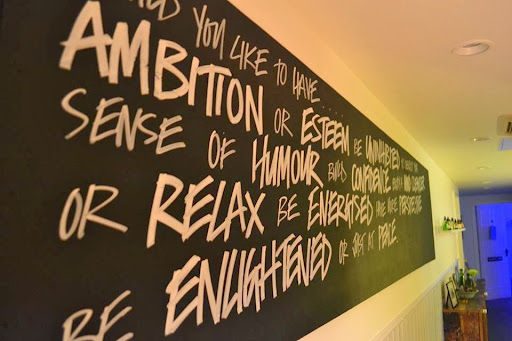 YOU LIKE TO HAVE
AMBITION OR ESTEEM BE UNINHIBITED
SENSE OF HUMOUR BUILD CONFIDENCE
OR RELAX BE ENERGISED HAVE MORE PERSPECTIVE
BE ENLIGHTENED OR JUST AT PEACE.